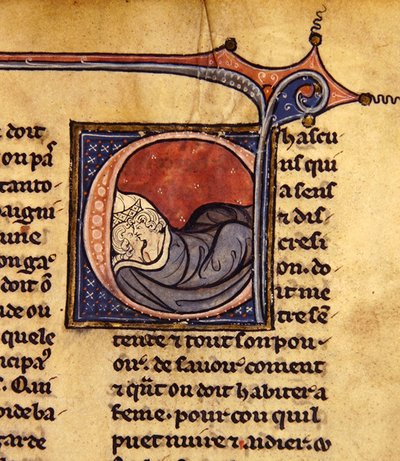 doit
on pā
tanto
aigni
une
on ga
doit ō
de ou
quele
cipaˢ
s. Qui
oideba
arde
Chascu
ns qui
a sens
⁊ dis
cresi
on. do
it me
tre sē
tente ⁊ tout son pou
oir. de sauoir coment
⁊ qn̄t on doit habiter a
feme. pour cou quil
puet nuire ⁊ aidier.